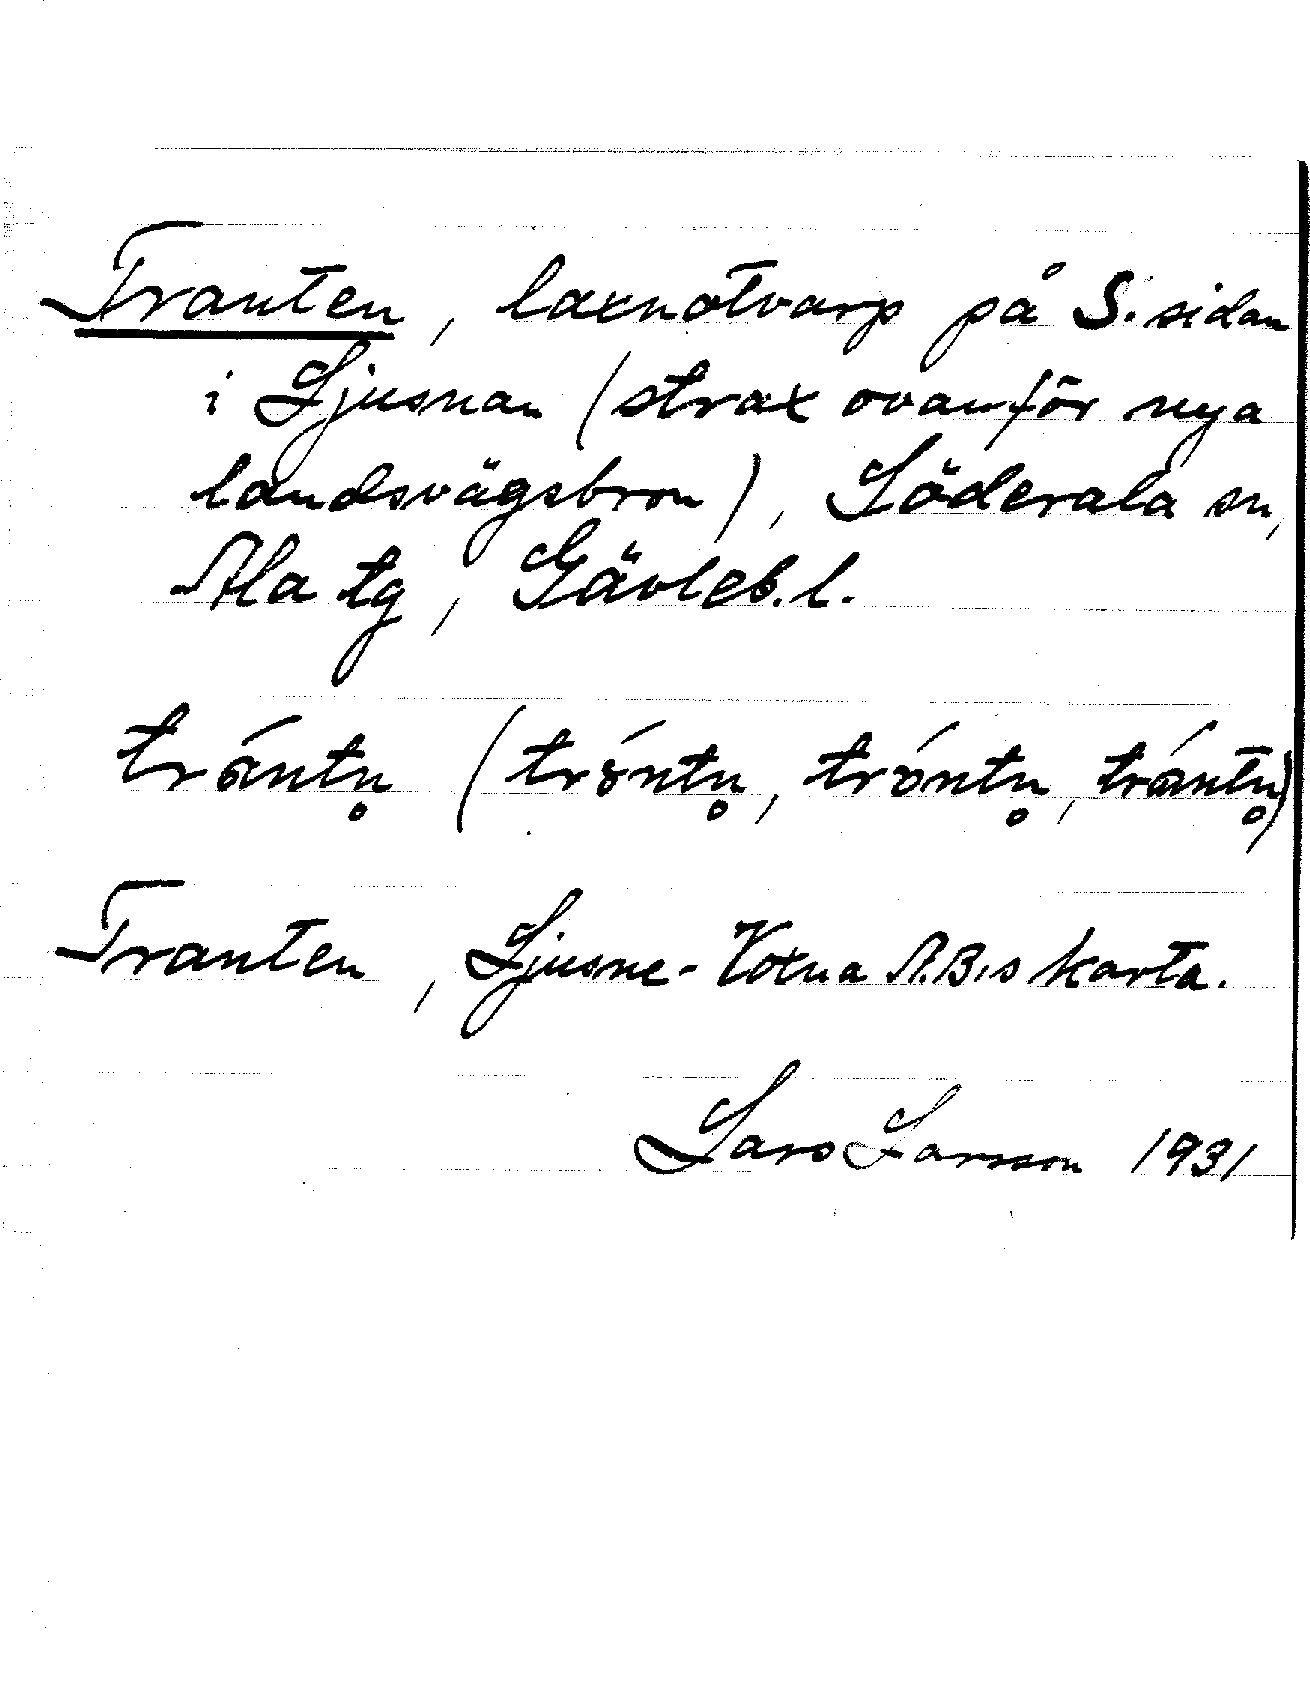 Tranten, laxnotvarp på S. sidan
i Ljusnan (strax ovanför nya
landsvägsbron), Söderala sn,
Ala tg, Gävleb. l.
trántn̥ (trȣ́ntn̥, tróntn̥, trántn̥)
Tranten, Ljusne-Voxna A.B.s karta.
Lars Larsson 1931